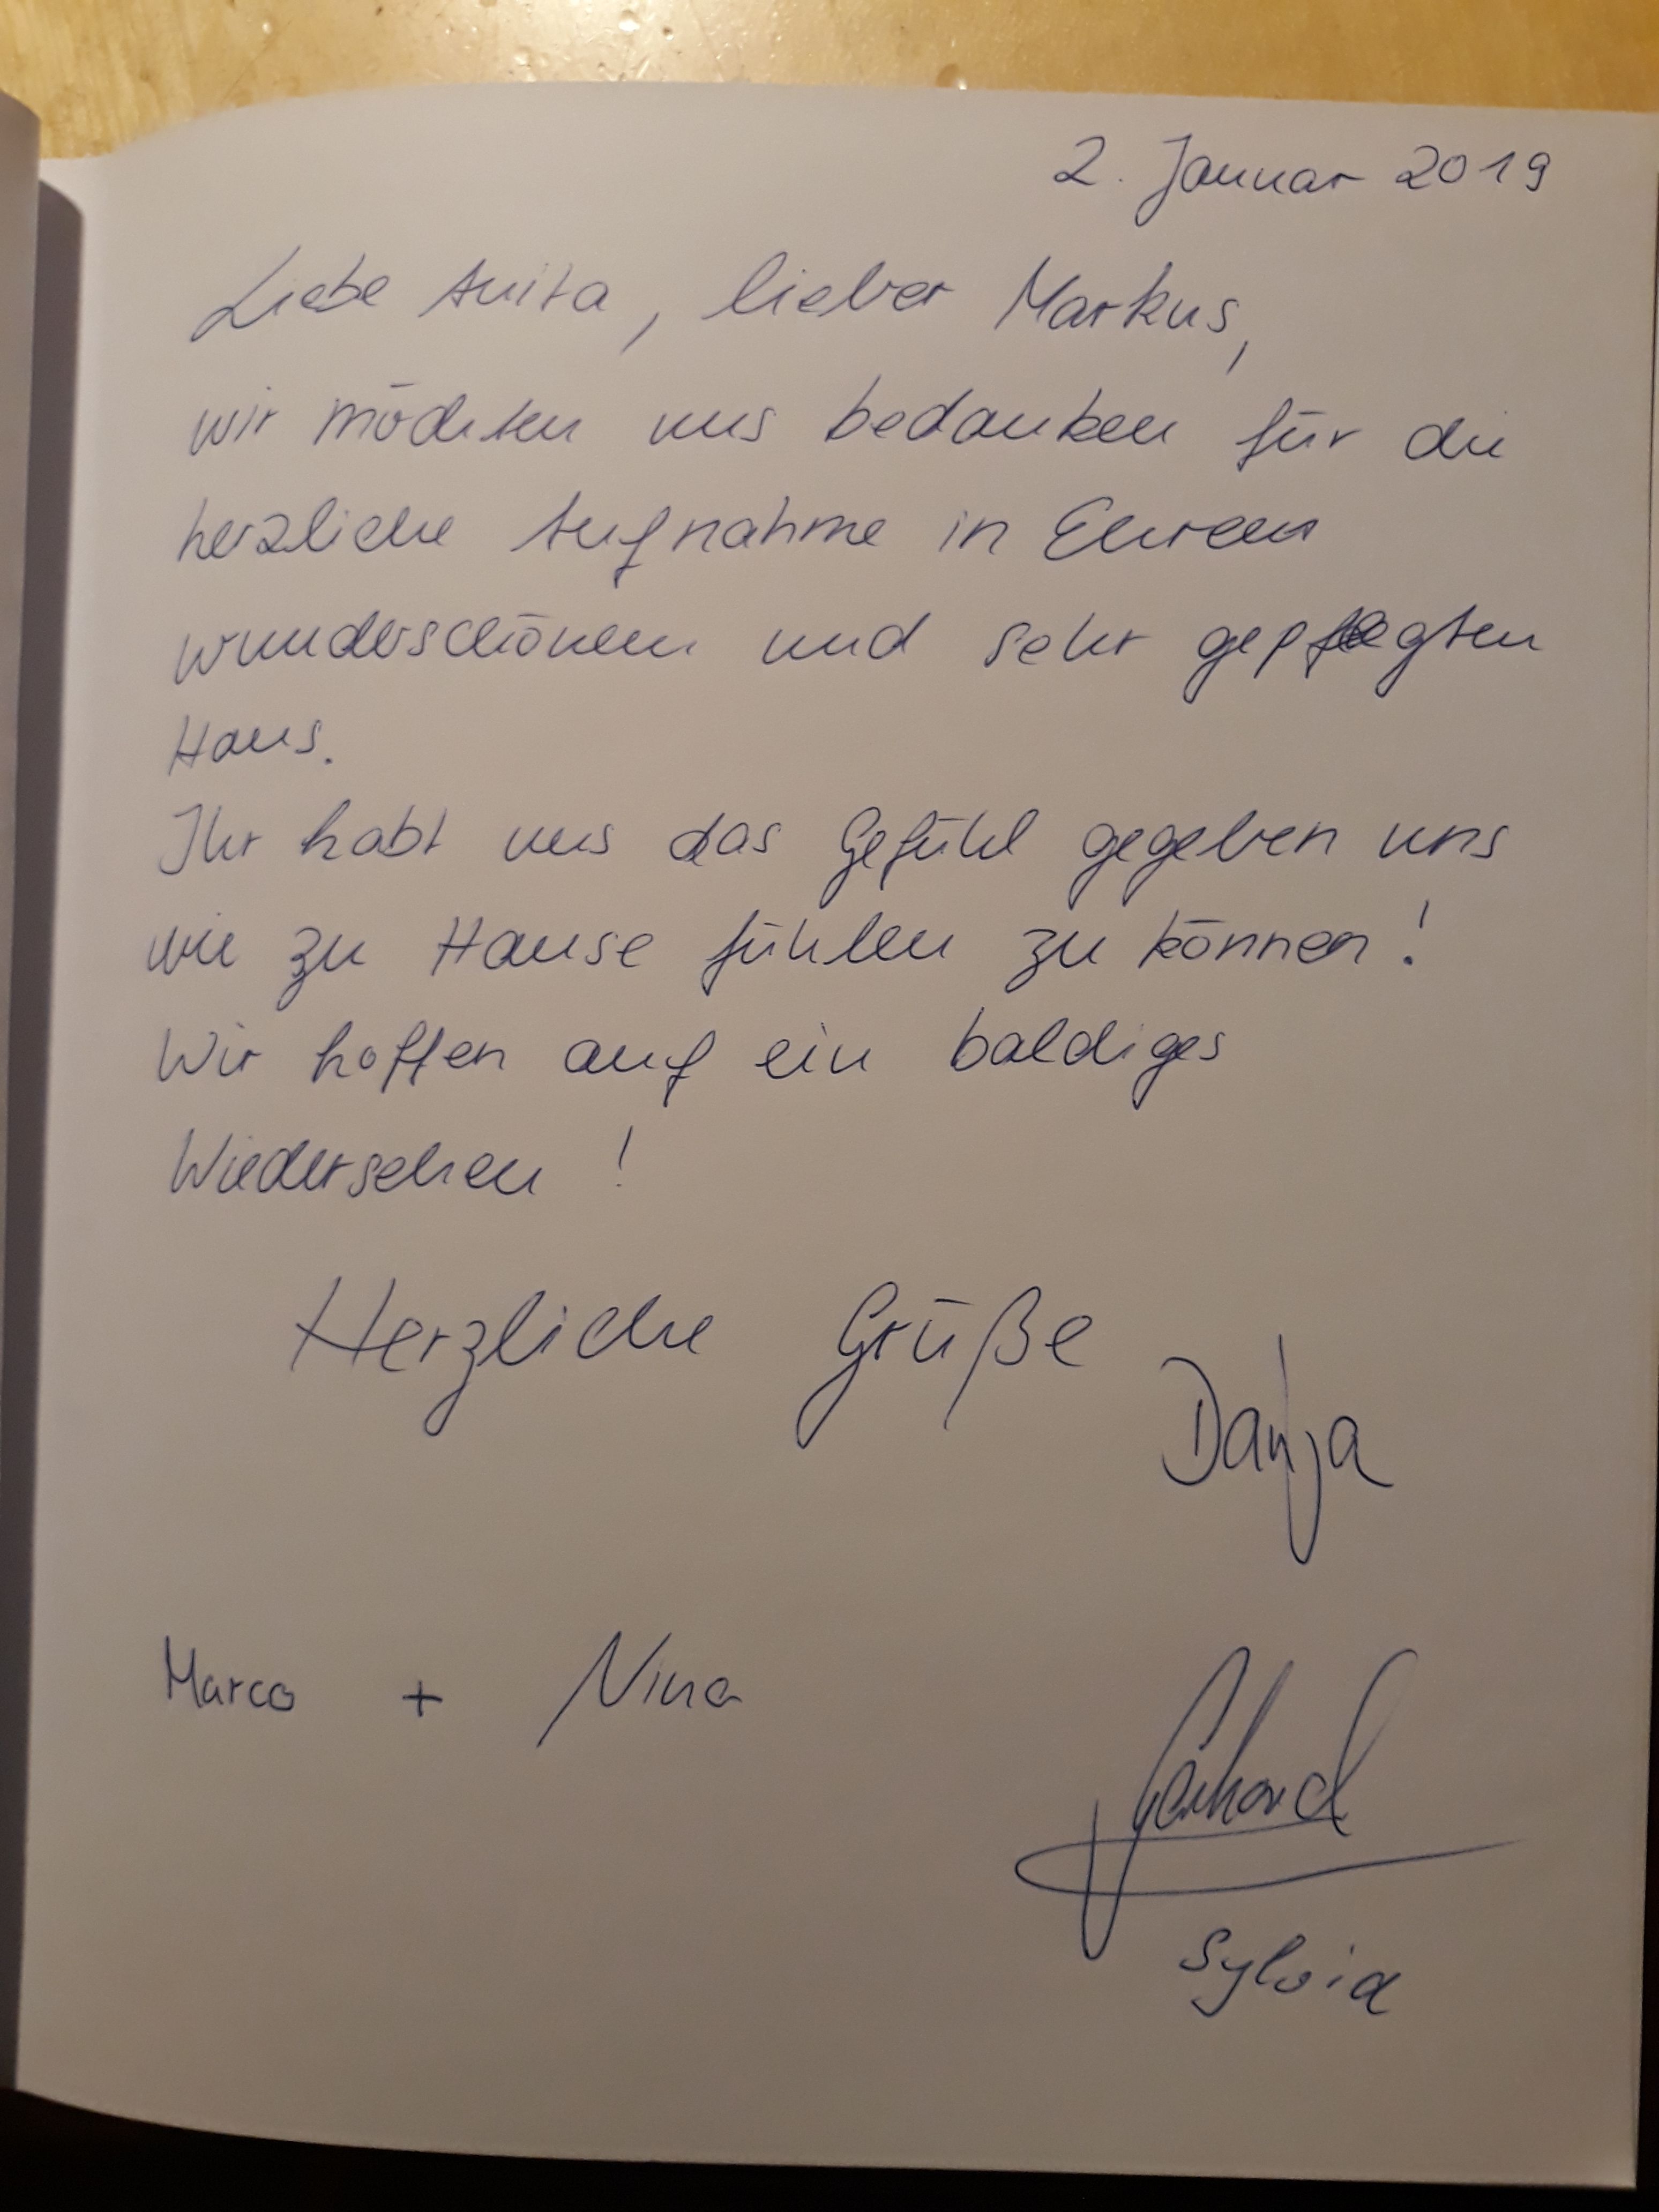 2. Januar 2019
Liebe Anita, lieber Markus,
wir möchten uns bedanken für die
herzliche Aufnahme in Eurem
wunderschönen und sehr gepflegten
Haus.
Ihr habt uns das Gefühl gegeben uns
wie zu Hause fühlen zu können!
Wir hoffen auf ein baldiges
Wiedersehen!
Herzliche Grüße
Danja
Marco + Nina
Gerhard
Sylvia